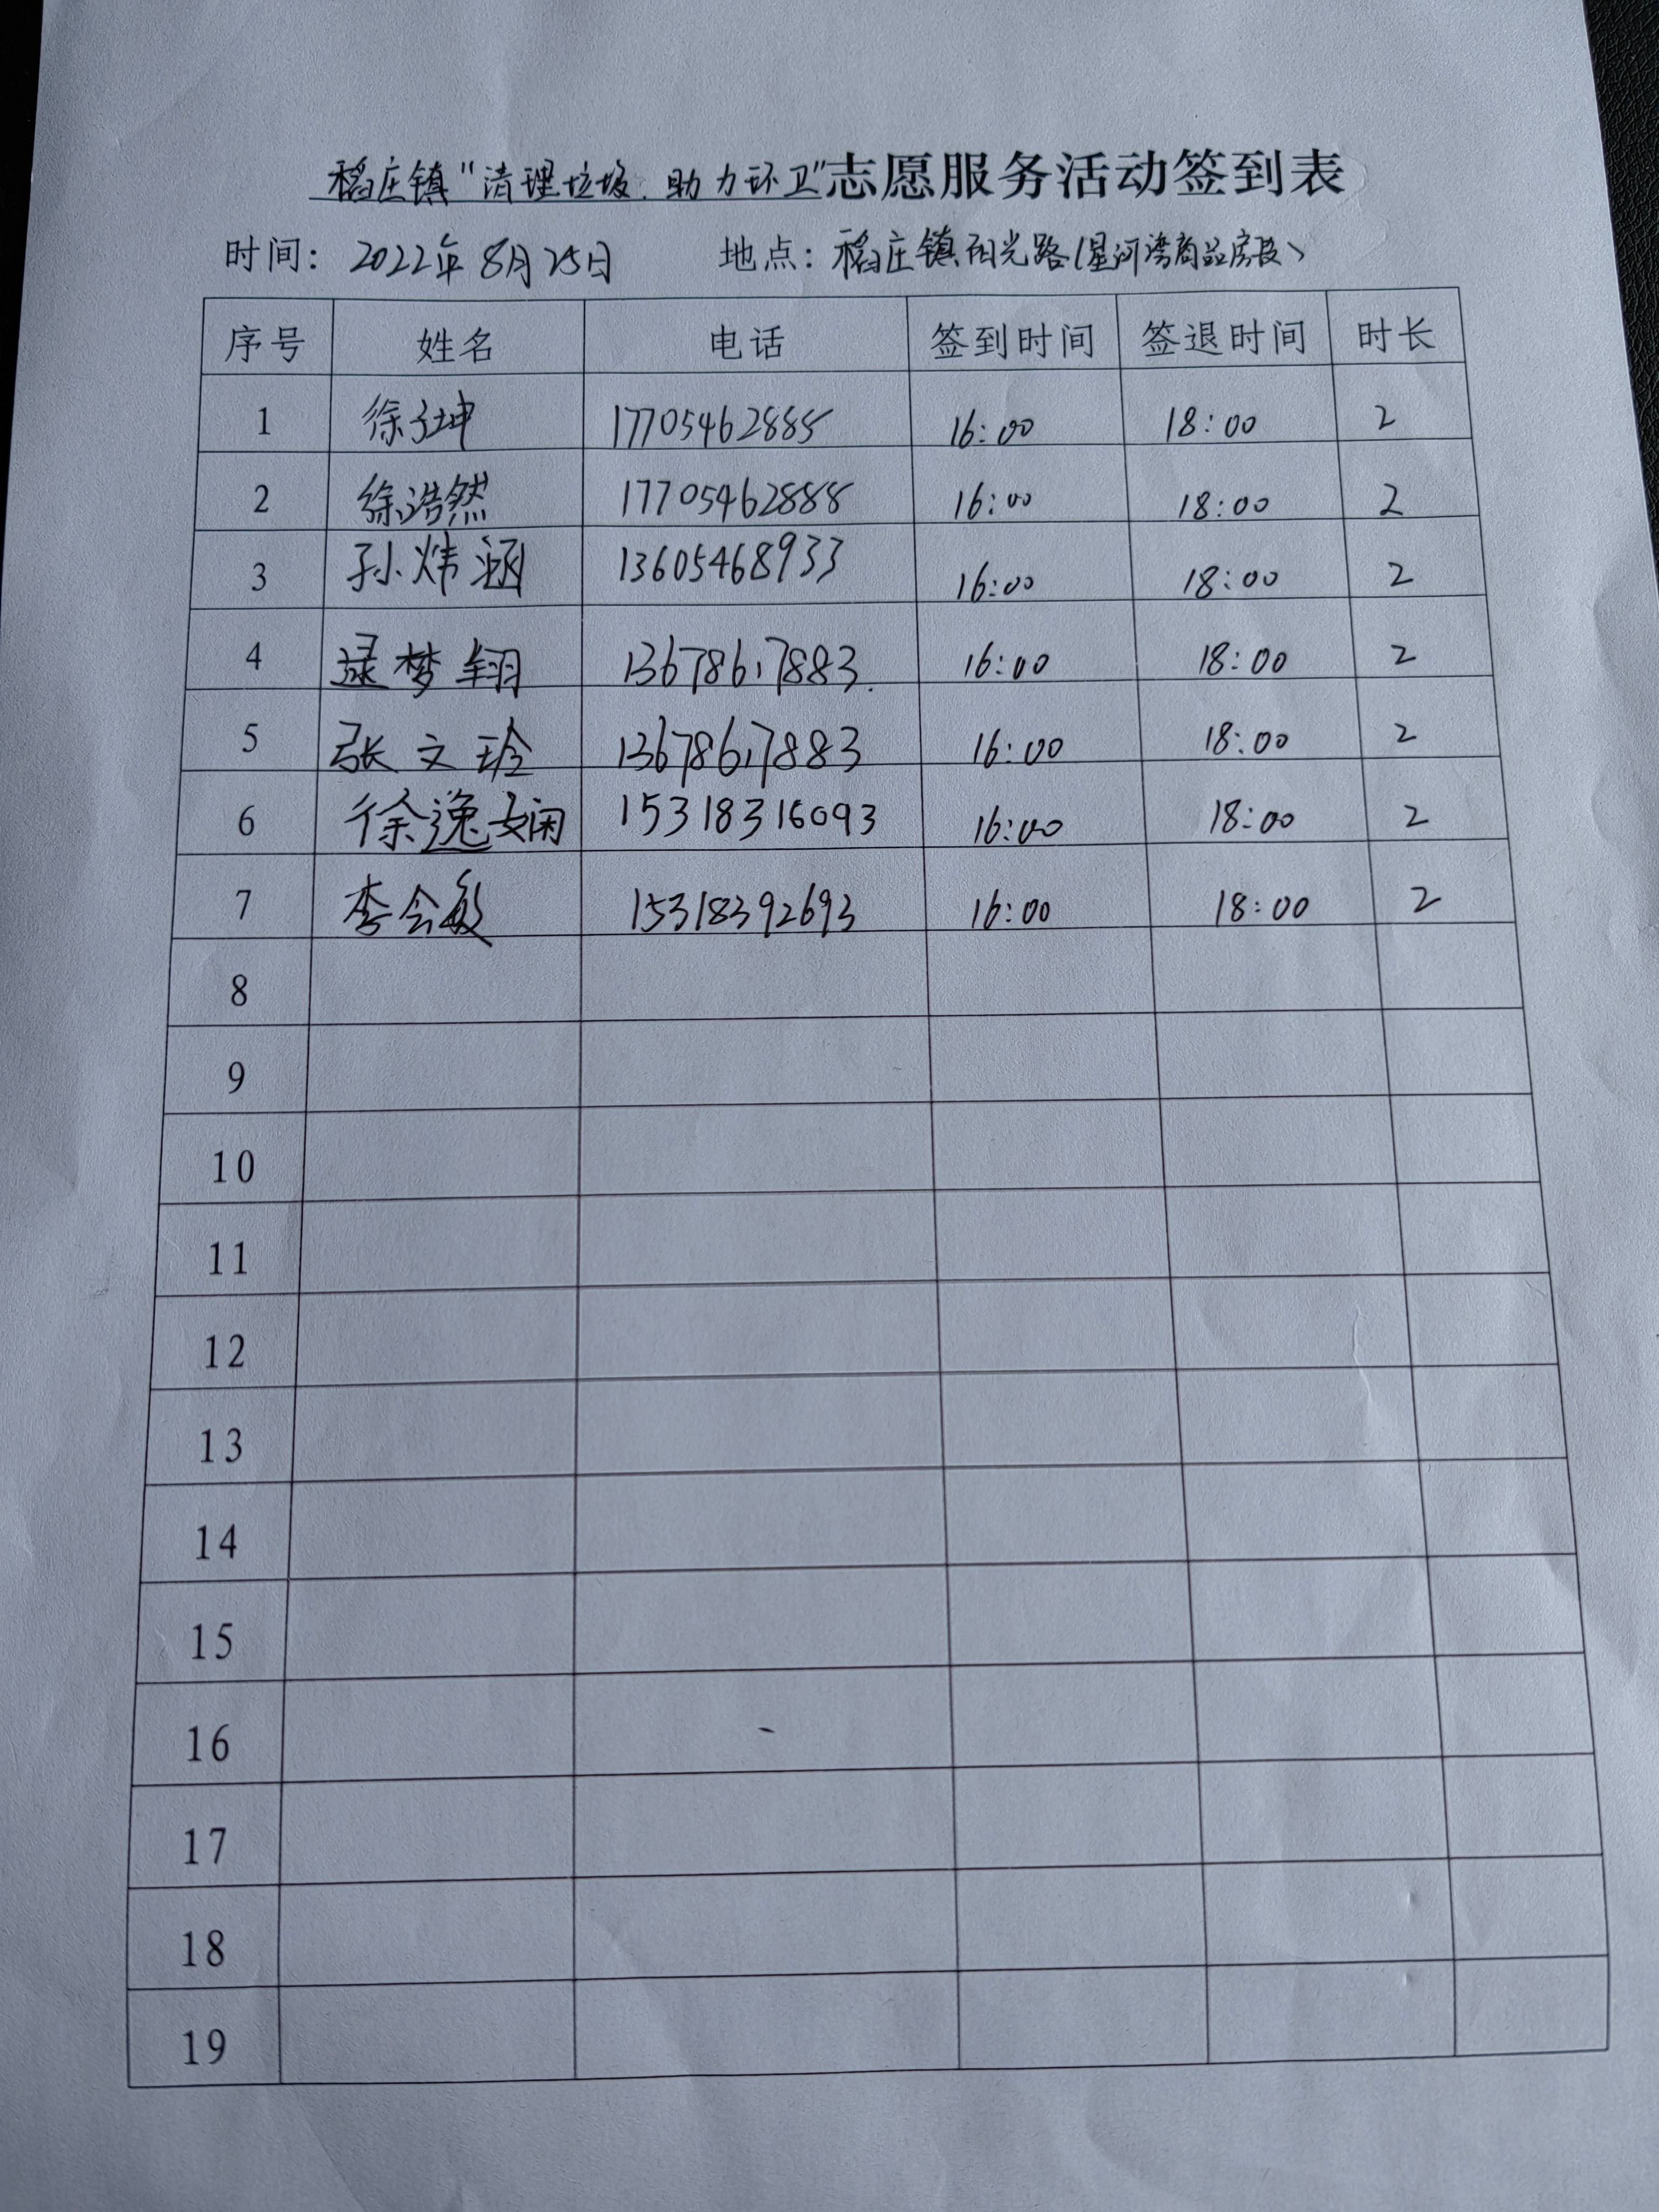 稻庄镇“清理垃圾.助力环卫”志愿服务活动签到表
时间：2022年8月25日 地点：稻庄镇阳光路(星河湾商品房段)
序号 姓名 电话 签到时间 签退时间 时长
1 徐子坤 17705462885 16:00 18:00 2
2 徐浩然 17705462888 16:00 18:00 2
3 孙炜涵 13605468933 16:00 18:00 2
4 逯梦翔 13678617883 16:00 18:00 2
5 张文玲 13678617883 16:00 18:00 2
6 徐逸娴 15318316093 16:00 18:00 2
7 李会敏 15318392693 16:00 18:00 2
8
9
10
11
12
13
14
15
16
17
18
19